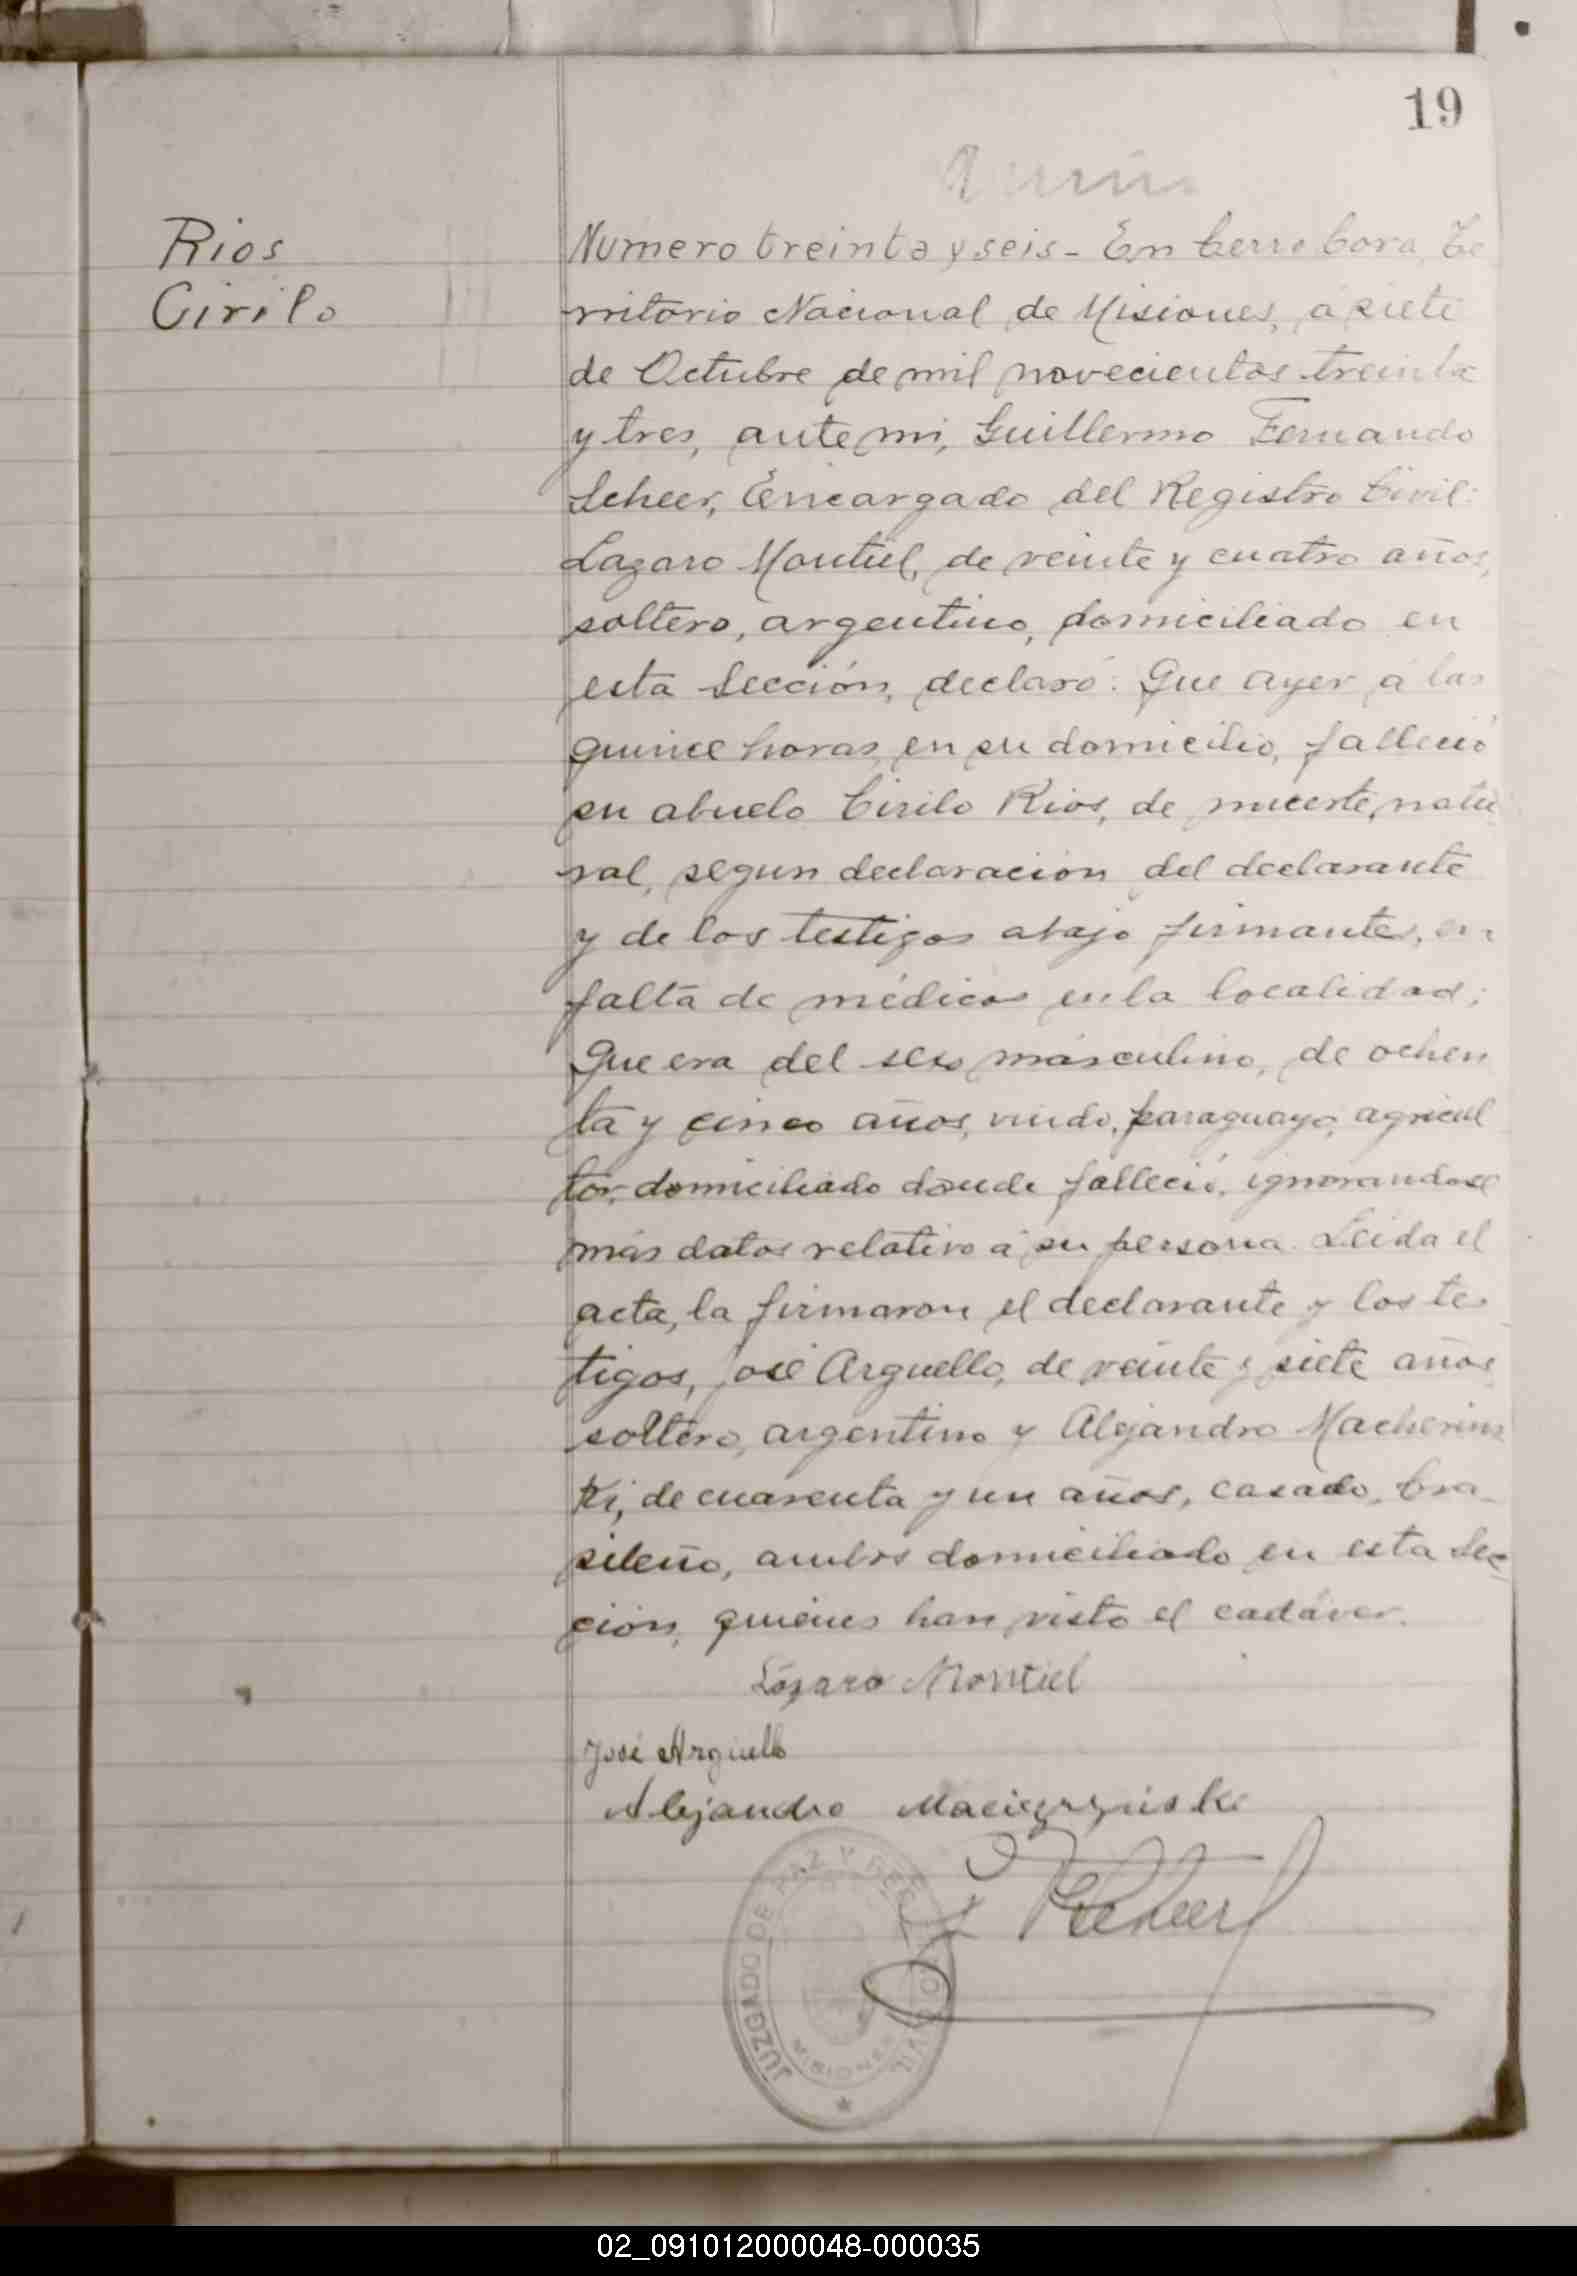 19
Rios
Cirilo
Numero treinta y seis - En Cerro Cora, Te
rritorio Nacional de Misiones, á siete
de Octubre de mil novecientos treinta
y tres, ante mi, Guillermo Fernando
Scheer, Encargado del Registro Civil:
Lazaro Montiel, de veinte y cuatro años,
soltero, argentino, domiciliado en
esta Sección, declaró: Que ayer á las
quince horas, en su domicilio, falleció
su abuelo Cirilo Rios, de muerte natu
ral, segun declaración del declarante
y de los testigos abajo firmantes, en
falta de médicos en la localidad;
Que era del sexo másculino, de ochen
ta y cinco años, viudo, paraguayo, agricul
tor, domiciliado donde falleció, ignorandose
más datos relativo á su persona. Leida el
acta, la firmaron el declarante y los tes
tigos, José Arguello, de veinte y siete años,
soltero, argentino y Alejandro Macherins
ki, de cuarenta y un años, casado, bra-
sileño, ambos domiciliado en esta Sec-
ción, quienes han visto el cadáver.
Lázaro Montiel
José Arguello
Alejandro
Scheer
JUZGADO DE PAZ Y REGISTRO CIVIL
MISIONES
02_091012000048-000035